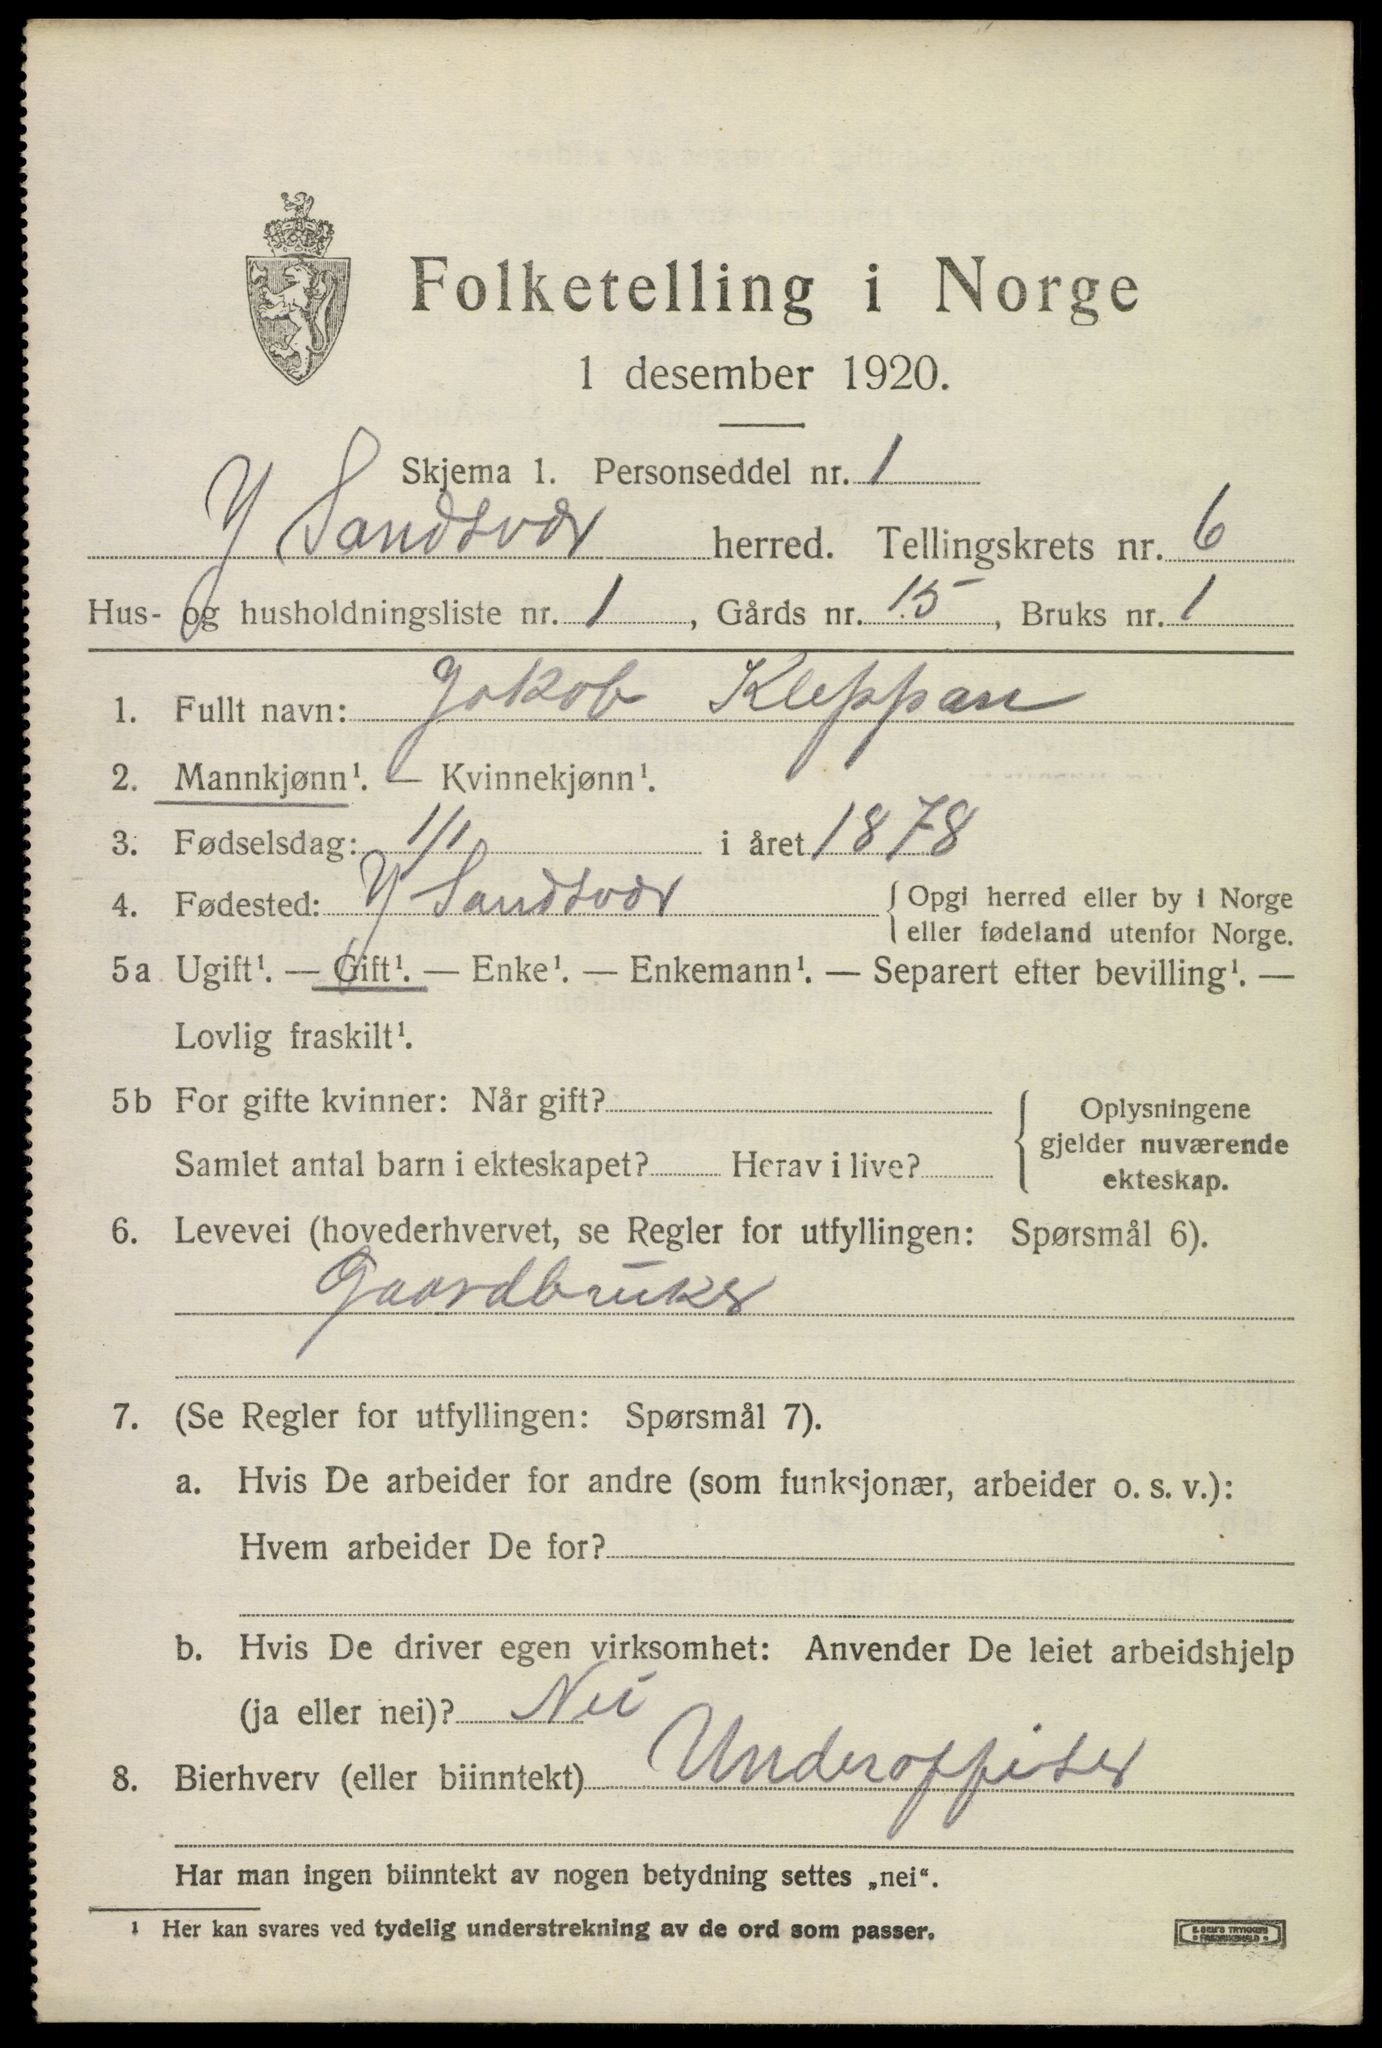 Folketelling i Norge
1 desember 1920.
Skjema 1. Personseddel nr. 1
Y Sandsvær herred. Tellingskrets nr. 6
Hus- og husholdningsliste nr. 1, Gårds nr. 15, Bruks nr. 1
1. Fullt navn: Jakob Kleppan
2. Mannkjønn¹. — Kvinnekjønn¹.
3. Fødselsdag: 1/1 i året 1878
4. Fødested: Y Sandsvær { Opgi herred eller by i Norge
eller fødeland utenfor Norge.
5a Ugift¹. — Gift¹. — Enke¹. — Enkemann¹. — Separert efter bevilling¹. —
Lovlig fraskilt¹.
5b For gifte kvinner: Når gift?
Samlet antal barn i ekteskapet? Herav i live?
{ Oplysningene
gjelder nuværende
ekteskap.
6. Levevei (hovederhvervet, se Regler for utfyllingen: Spørsmål 6).
Gaardbruker
7. (Se Regler for utfyllingen: Spørsmål 7).
a. Hvis De arbeider for andre (som funksjonær, arbeider o. s. v.):
Hvem arbeider De for?
b. Hvis De driver egen virksomhet: Anvender De leiet arbeidshjelp
(ja eller nei)? Nei
8. Bierhverv (eller biinntekt) Underoffiser
Har man ingen biinntekt av nogen betydning settes „nei".
¹ Her kan svares ved tydelig understrekning av de ord som passer.